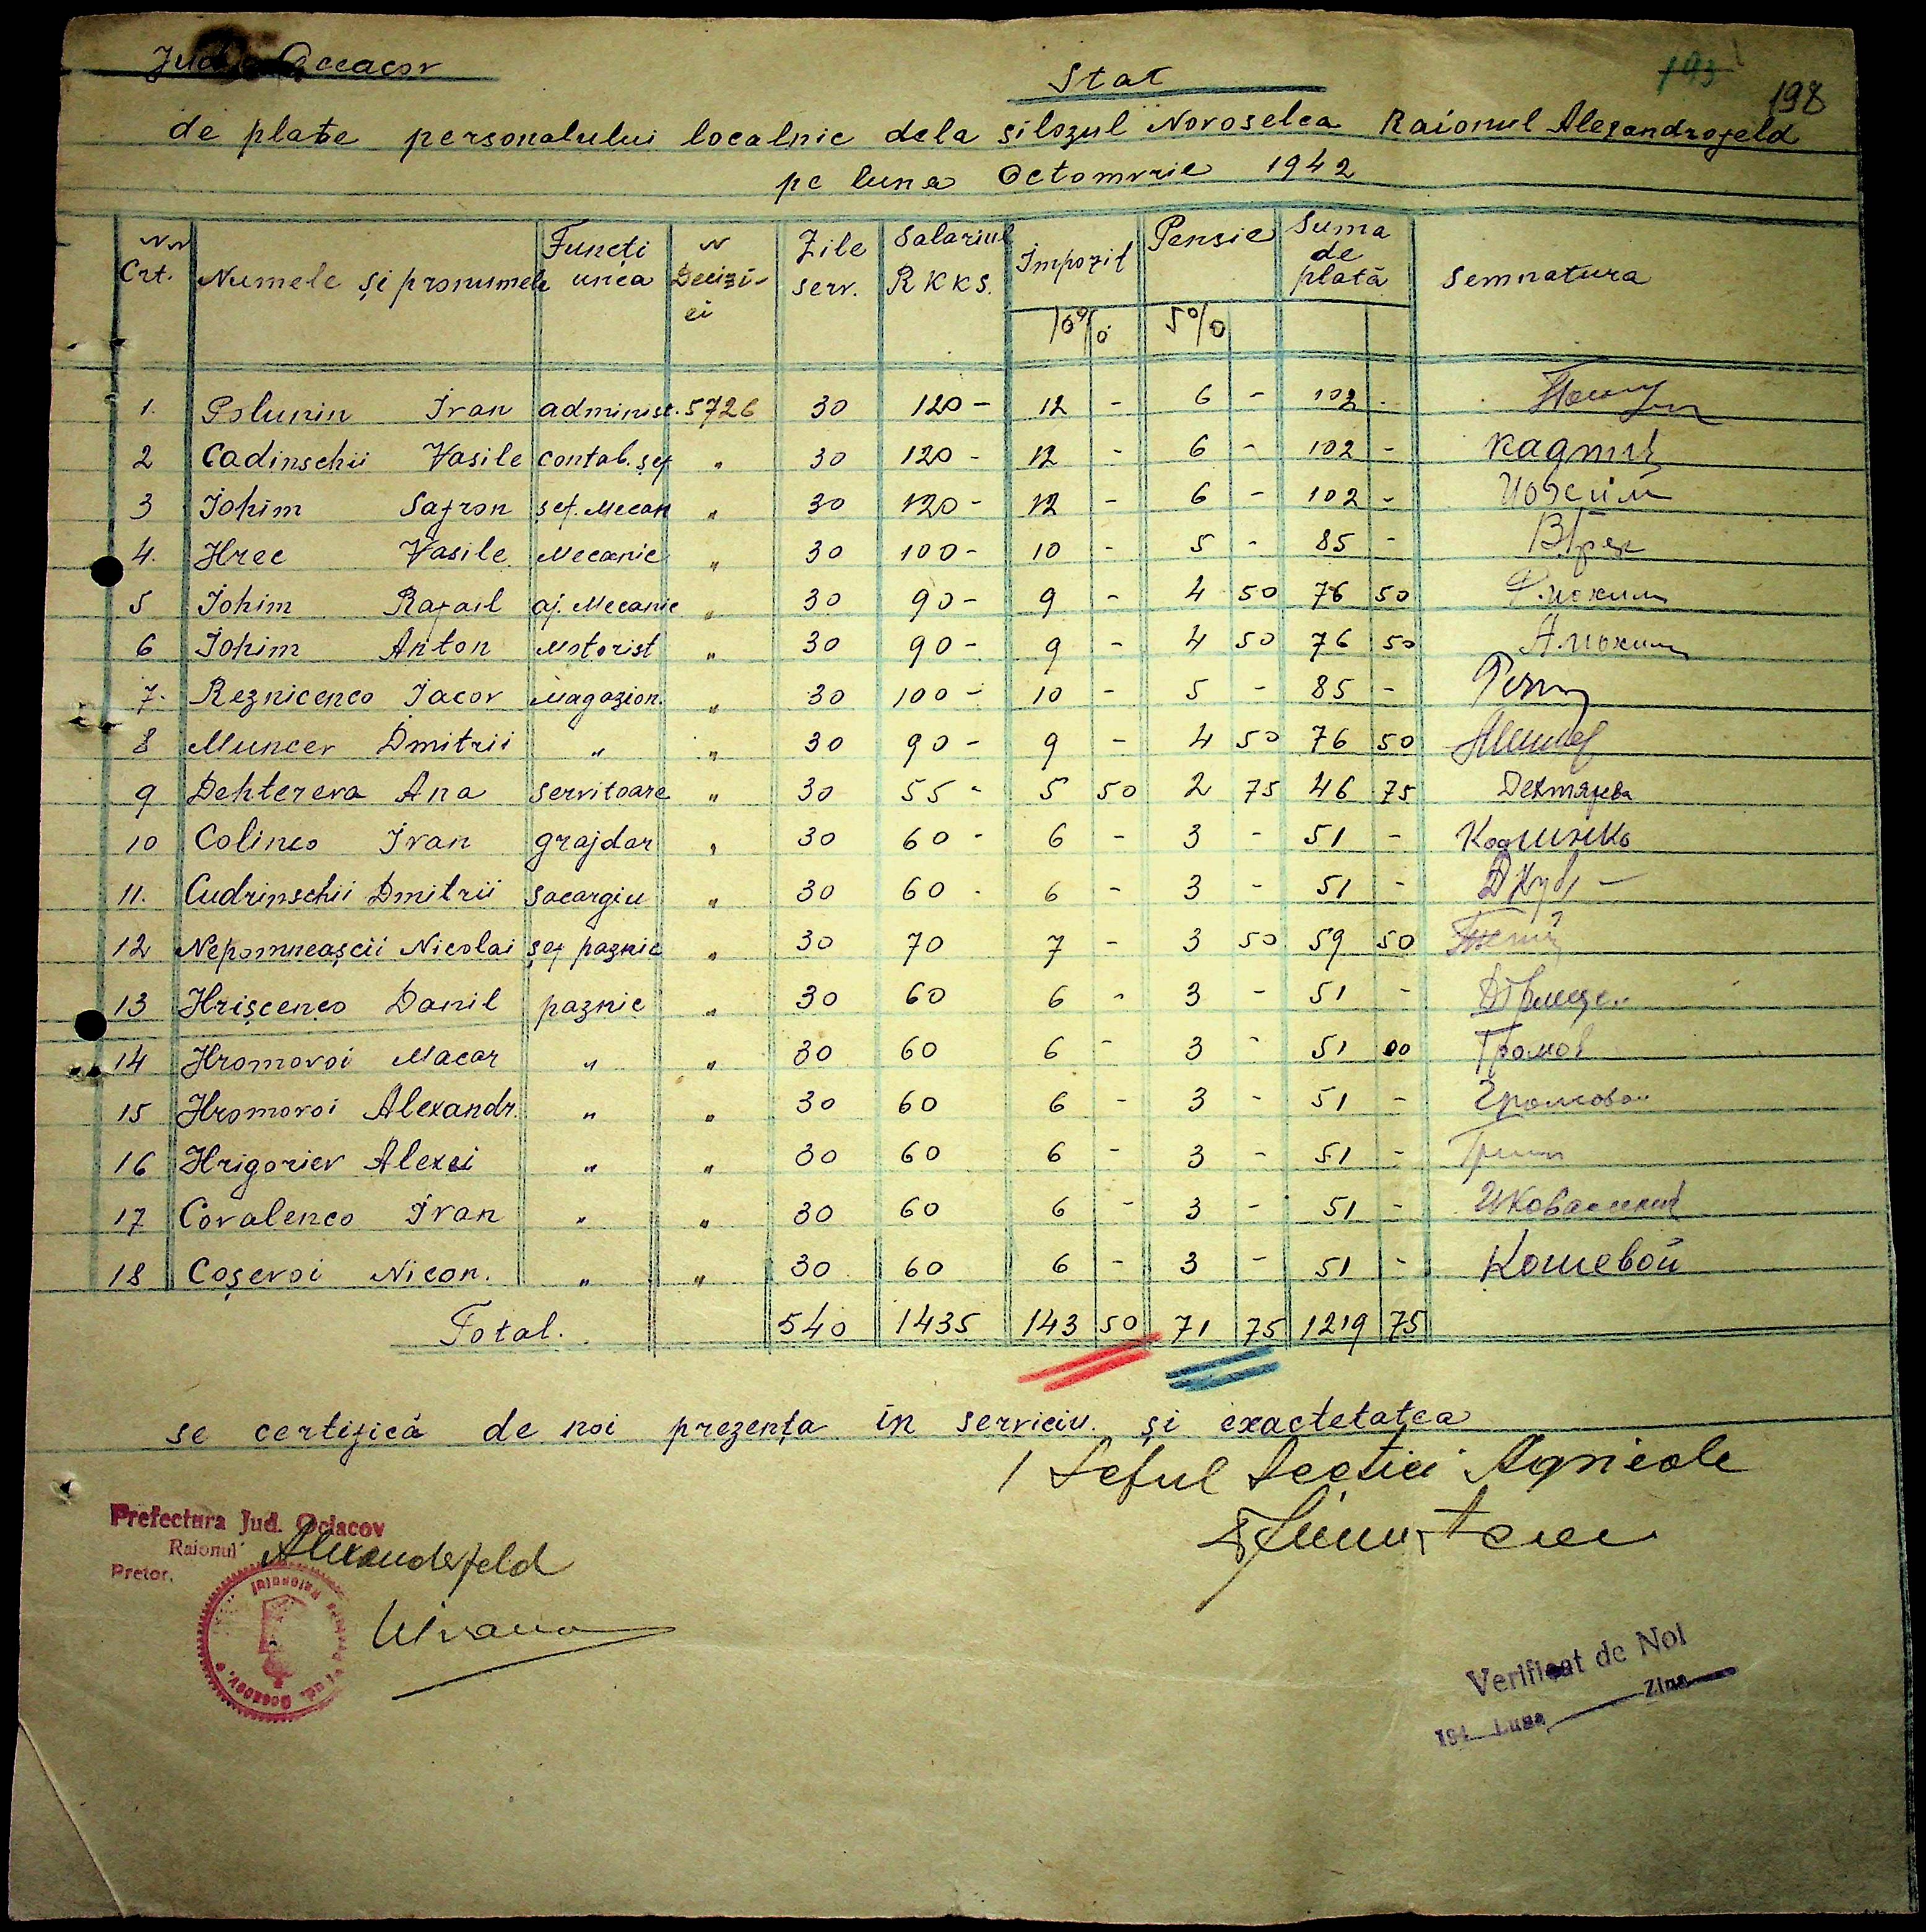 Jud. Oceacov
193
198
Stat
de plate personalului localnic dela silozul Novoselca Raionul Alexandrofeld
pe luna Octomvrie 1942
Nr Crt. Numele și pronumele Funcți unea N Decizi-ei Zile serv. Salariul RKKS. Impozit 10% Pensie 5% Suma de plată Semnatura
1. Polunin Ivan administ. 5726 30 120 - 12 - 6 - 102 -
2 Cadinschii Vasile contab. șef " 30 120 - 12 - 6 - 102 - Кадинс
3 Iohim Safron șef. Mecan " 30 120 - 12 - 6 - 102 - Иохим
4. Hrec Vasile Mecanic " 30 100 - 10 - 5 - 85 - В Грек
5 Iohim Rafail aj. Mecanic " 30 90 - 9 - 4 50 76 50 Р. Иохим
6 Iohim Anton Motorist " 30 90 - 9 - 4 50 76 50 А. Иохим
7. Reznicenco Iacov Magazion. " 30 100 - 10 - 5 - 85 - Резн
8 Muncev Dmitrii " " 30 90 - 9 - 4 50 76 50
9 Dehtereva Ana servitoare " 30 55 - 5 50 2 75 46 75 Дехтярева
10 Colinco Ivan grajdar " 30 60 - 6 - 3 - 51 - Колинко
11. Cudrinschii Dmitrii sacargiu " 30 60 - 6 - 3 - 51 - Д Куд
12 Nepomneașcii Nicolai șef paznic " 30 70 7 - 3 50 59 50
13 Hrișcenco Danil paznic " 30 60 6 - 3 - 51 - Д Грищен
14 Hromovoi Macar " " 30 60 6 - 3 - 51 00 Громов
15 Hromovoi Alexandr. " " 30 60 6 - 3 - 51 - Громовой
16 Hrigoriev Alexei " " 30 60 6 - 3 - 51 - Григ
17 Covalenco Ivan " " 30 60 6 - 3 - 51 - И Коваленк
18 Coșevoi Nicon. " " 30 60 6 - 3 - 51 - Кошевой
Total. 540 1435 143 50 71 75 1219 75
se certifică de noi prezența în serviciu și exactetatea
Seful Sectiei Agricole
Prefectura Jud. Ociacov
Raionul Alexanderfeld
Pretor,
Verificat de Noi
194 Luna Ziua